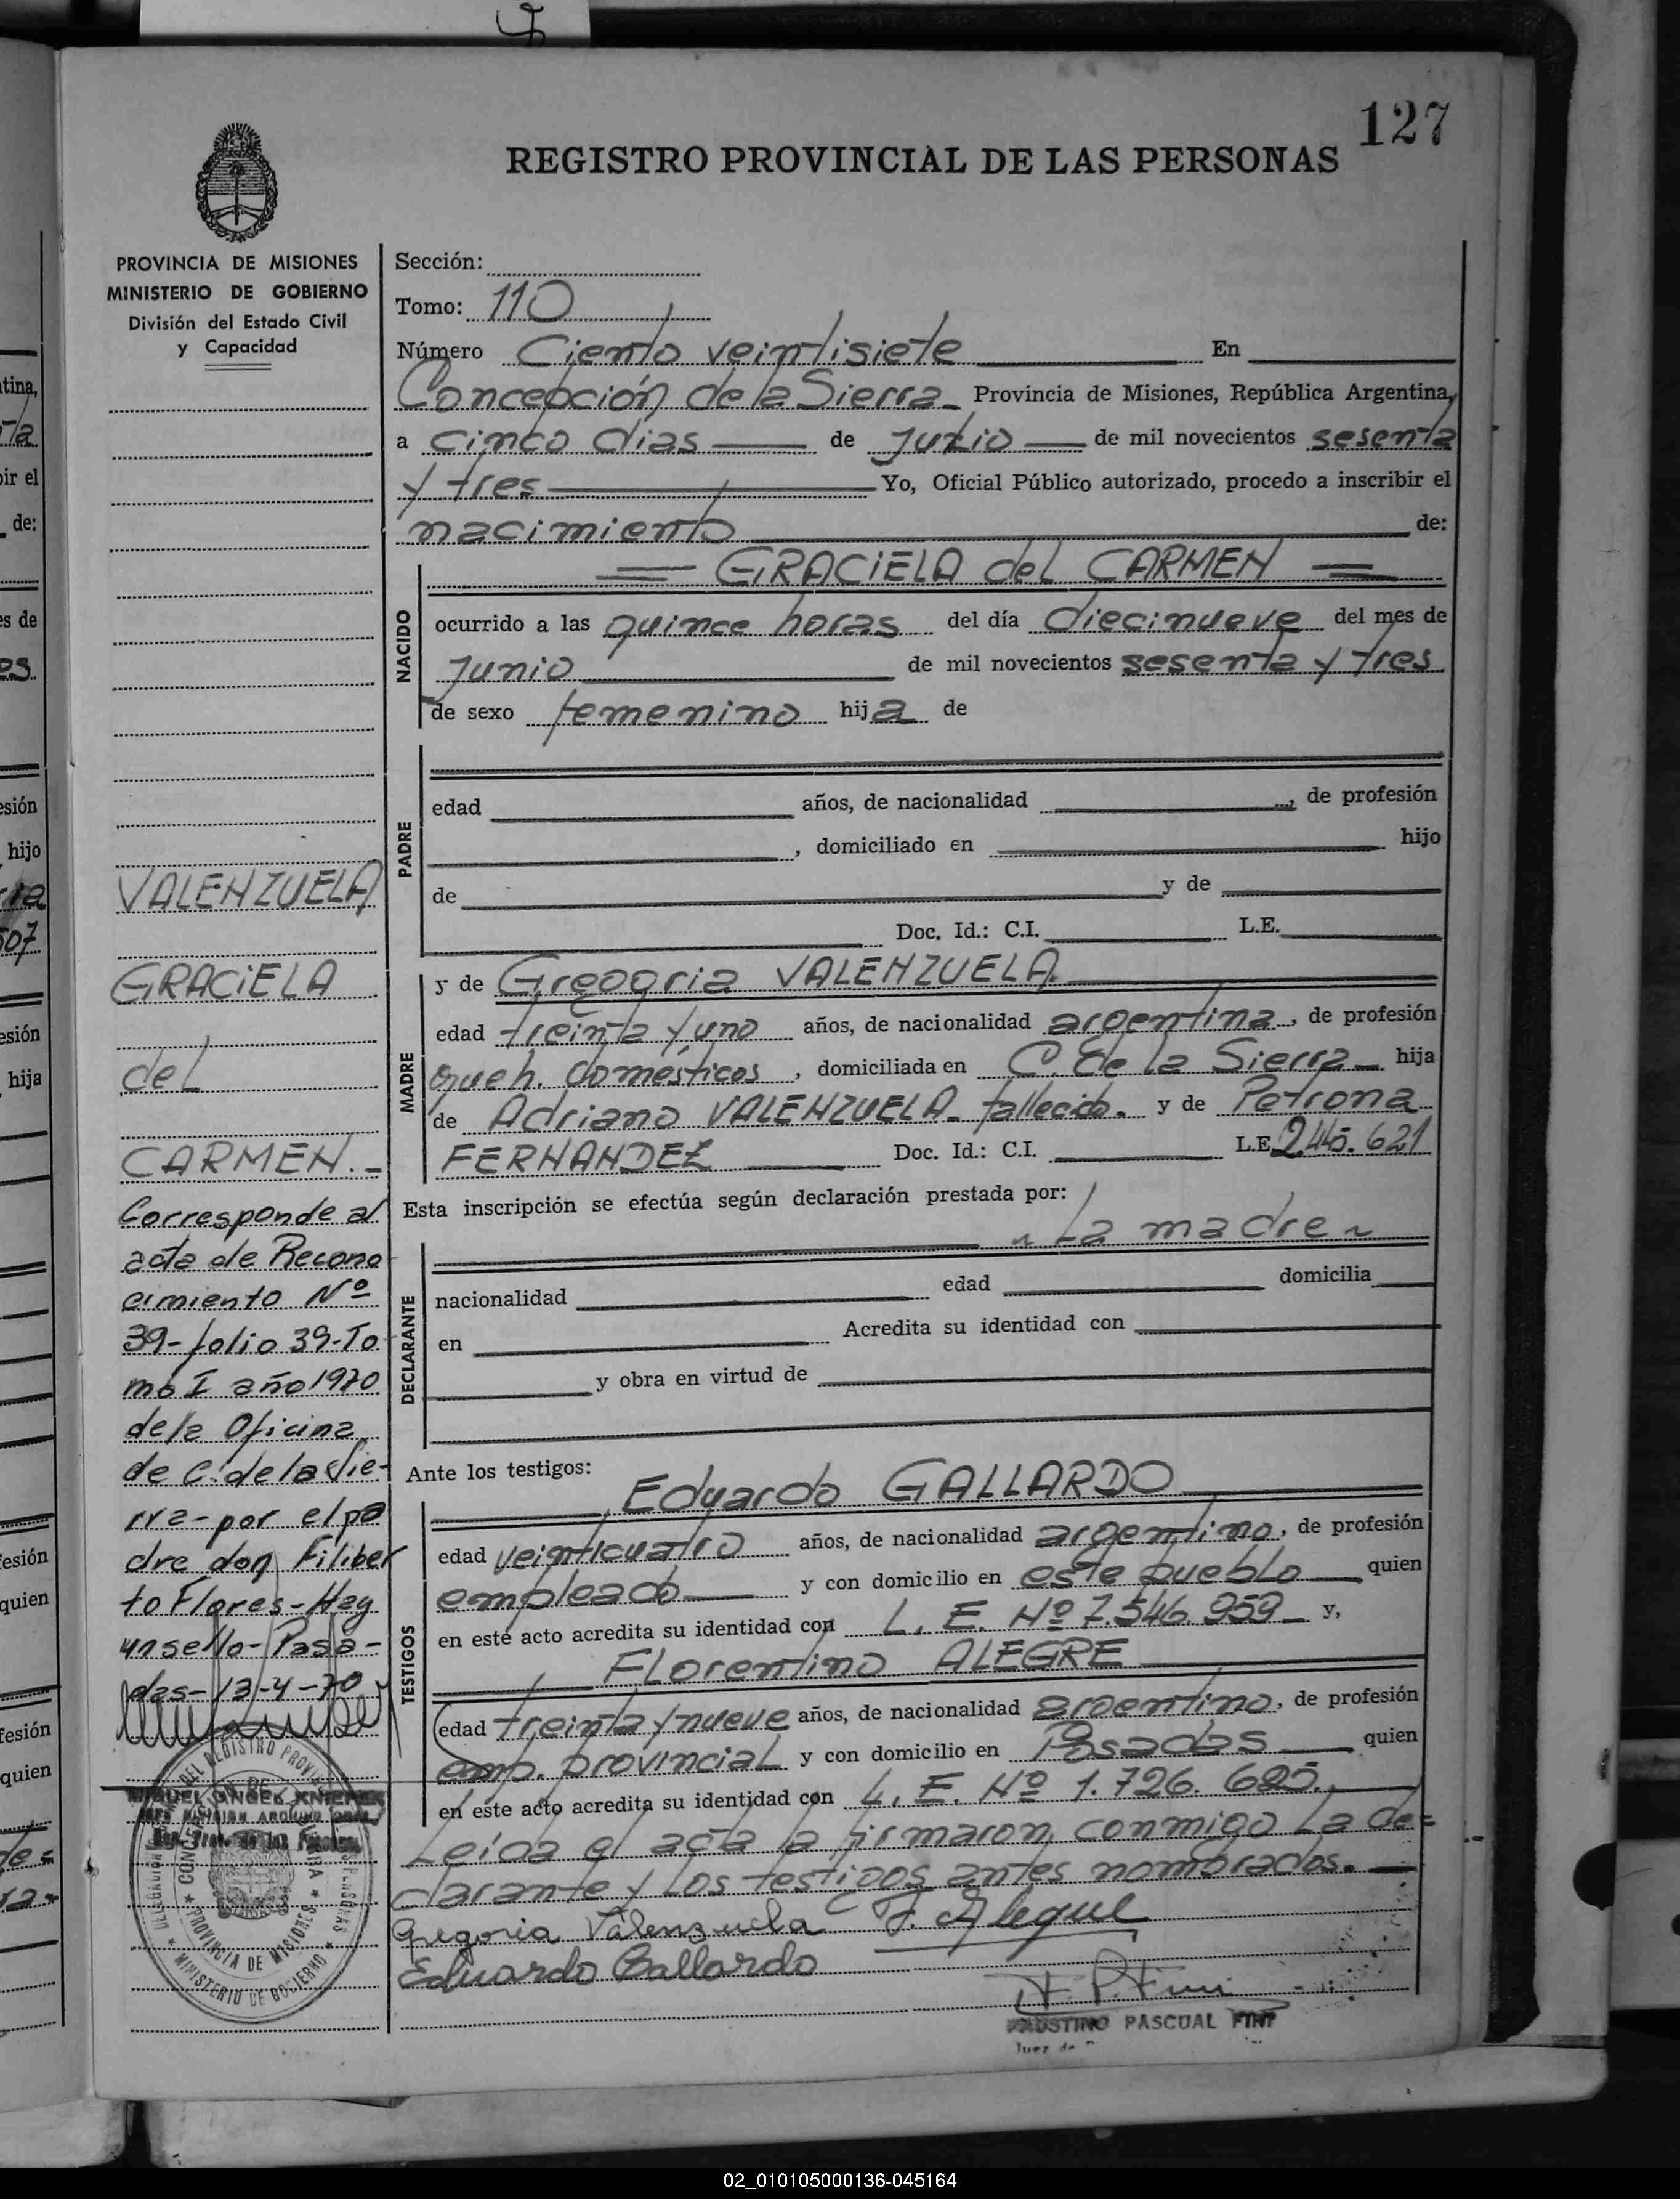 127
REGISTRO PROVINCIAL DE LAS PERSONAS
PROVINCIA DE MISIONES
MINISTERIO DE GOBIERNO
División del Estado Civil
y Capacidad
VALENZUELA
GRACIELA
del
CARMEN.-
Corresponde al
acta de Recono
cimiento Nº
39-folio 39-To
mo I año 1970
de la Oficina
de C. de la Sie-
rra-por el pa
dre don Filiber
to Flores-Hay
un sello-Posa-
das-13-4-70
MIGUEL ANGEL
PROVINCIA DE MISIONES
MINISTERIO DE GOBIERNO
Sección:
Tomo: 110
Número Ciento veintisiete En
Concepción de la Sierra Provincia de Misiones, República Argentina,
a cinco días de Julio de mil novecientos sesenta
y tres Yo, Oficial Público autorizado, procedo a inscribir el
nacimiento de:
NACIDO
GRACIELA del CARMEN
ocurrido a las quince horas del día diecinueve del mes de
Junio de mil novecientos sesenta y tres
de sexo femenino hija de
PADRE
edad años, de nacionalidad , de profesión
, domiciliado en hijo
de y de
Doc. Id.: C.I. L.E.
MADRE
y de Gregoria VALENZUELA
edad treinta y uno años, de nacionalidad argentina, de profesión
queh. domésticos, domiciliada en C. de la Sierra hija
de Adriano VALENZUELA- fallecido. y de Petrona
FERNANDEZ Doc. Id.: C.I. L.E. 245.621
Esta inscripción se efectúa según declaración prestada por:
La madre
DECLARANTE
nacionalidad edad domicilia
en Acredita su identidad con
y obra en virtud de
Ante los testigos:
TESTIGOS
Eduardo GALLARDO
edad veinticuatro años, de nacionalidad argentino, de profesión
empleado y con domicilio en este pueblo quien
en este acto acredita su identidad con L. E. Nº 7.546.959 y,
Florentino ALEGRE
edad treinta y nueve años, de nacionalidad argentino, de profesión
emp. provincial y con domicilio en Posadas quien
en este acto acredita su identidad con L. E. Nº 1.726.685.
Leída el acta la firmaron conmigo la de=
clarante y los testigos antes nombrados.
Gregoria Valenzuela F. Alegre
Eduardo Gallardo
F. P. Fini
FAUSTINO PASCUAL FINI
Juez de
02_010105000136-045164